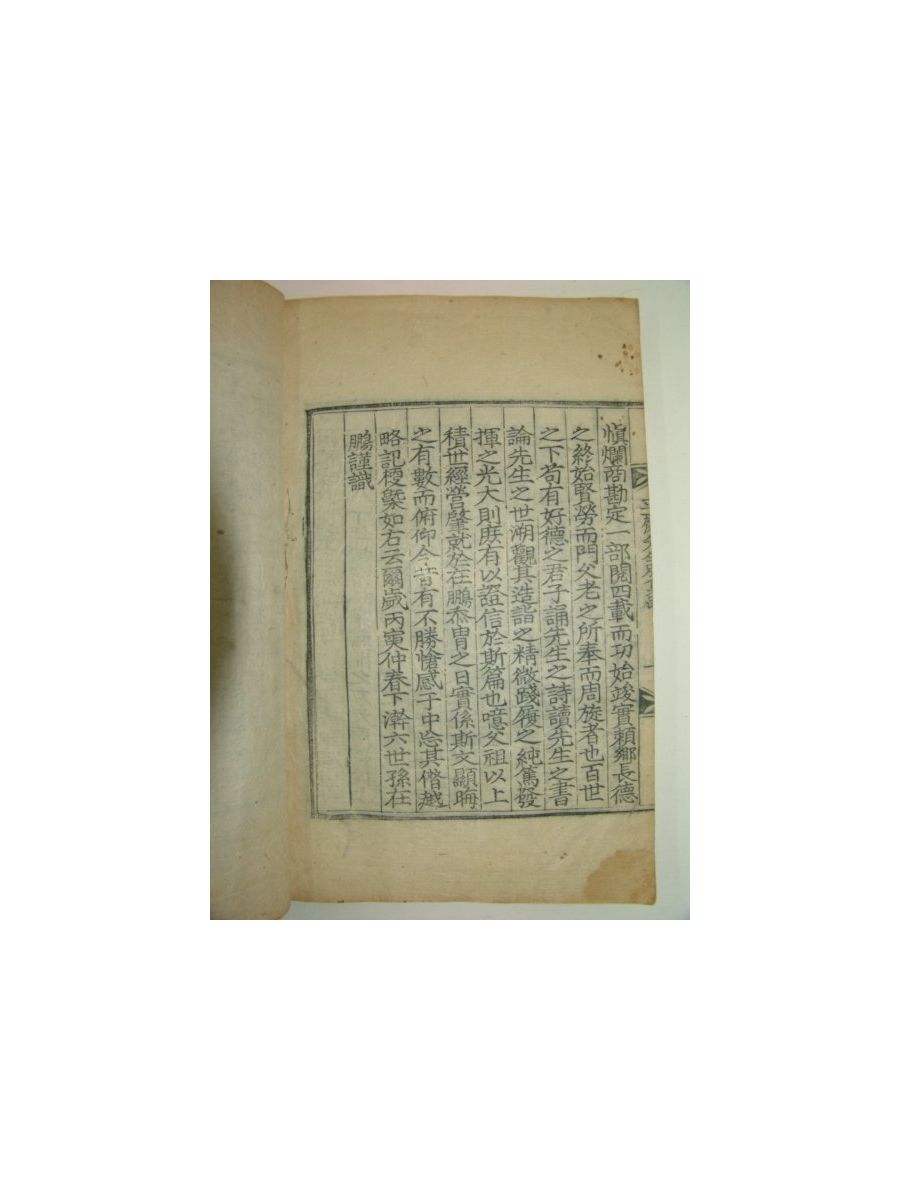 愼爛商勘定一部閱四載而功始竣實賴鄕長德
之終始賢勞而門父老之所奉而周旋者也百世
之下苟有好德之君子誦先生之詩讀先生之書
論先生之世溯觀其造詣之精微踐履之純篤發
揮之光大則庶有以證信於斯篇也噫父祖以上
積世經營肇就於在鵬忝胄之日實係斯文顯晦
之有數而俯仰今昔有不勝愴感于中忘其僭越
略記梗槩如右云爾歲丙寅仲春下澣六世孫在
鵬謹識